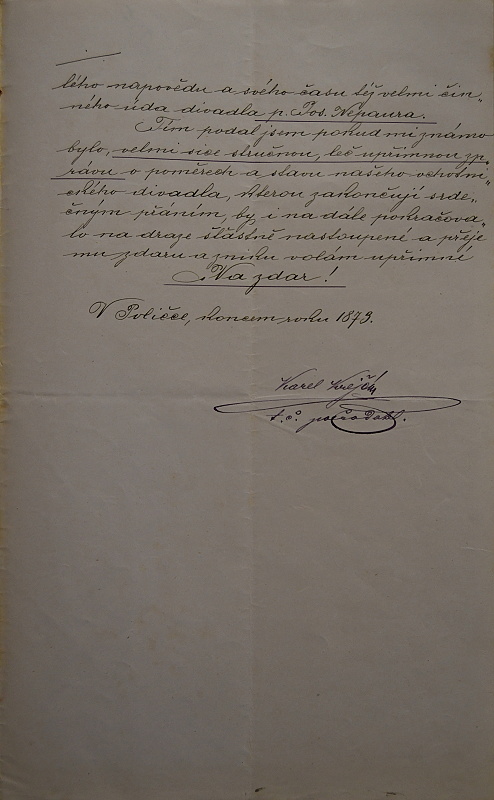 lého napovědu a svého času též velmi čin„
ného úda divadla p. Jos. Nepaura.
Tím podal jsem pokud mi známo
bylo, velmi sice stručnou, leč upřímnou zp„
rávu o poměrech a stavu našeho ochotni„
ckého divadla, kterou zakončuji srde„
čným přáním, by i na dále pokračova„
lo na dráze šťastně nastoupené a přeje
mu zdaru a zniku volám upřímné
Na zdar!
V Poličce, koncem roku 1873.
Karel Krejčí
t. č. pořadatel.